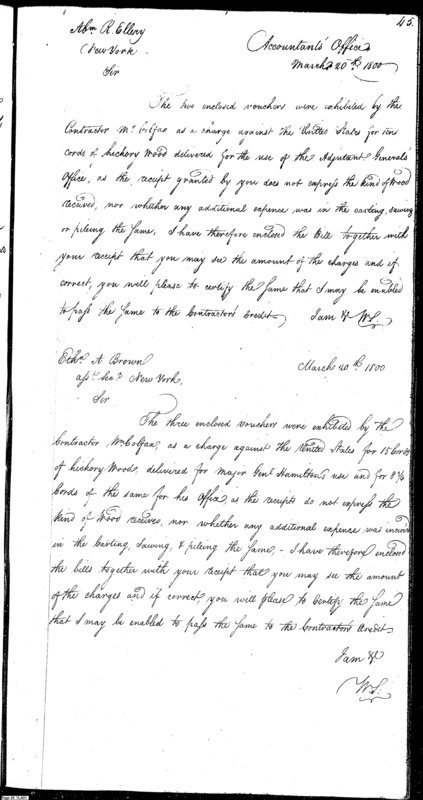 45.
Abm. R. Ellery
New York
Sir
Accountants' Office
March 20th 1800
The two enclosed vouchers were exhibited by the
Contractor Mr Colfax as a charge against the United States for ten
cords of hickory Wood delivered for the use of the Adjutant Generals'
Office, as the receipt granted by you does not express the kind of Wood
received, nor whether any additional expence was in the carting, sawing
or pileing the same, I have therefore enclosed the Bill together with
your receipt that you may see the amount of the charges and if
correct, you will please to certify the same that I may be enabled
to pass the same to the Contractors' Credit. I am &c W.S.
Ethn. A Brown
asst. Secy. New York,
Sir
March 20th 1800
The three enclosed vouchers were exhibited by the
Contractor Wm Colfax, as a charge against the United States for 15 Cords
of hickory Wood, delivered for Major Genl Hamilton's use and for
Cords of the same for his Office, as the receipts do not express the
kind of Wood received, nor whether any additional expence was incurred
in the carting, sawing, & pileing the same, - I have therefore enclosed
the bills together with your receipt that you may see the amount
of the charges and if correct, you will please to certify the same
that I may be enabled to pass the same to the Contractors' Credit
I am &c
W.S.